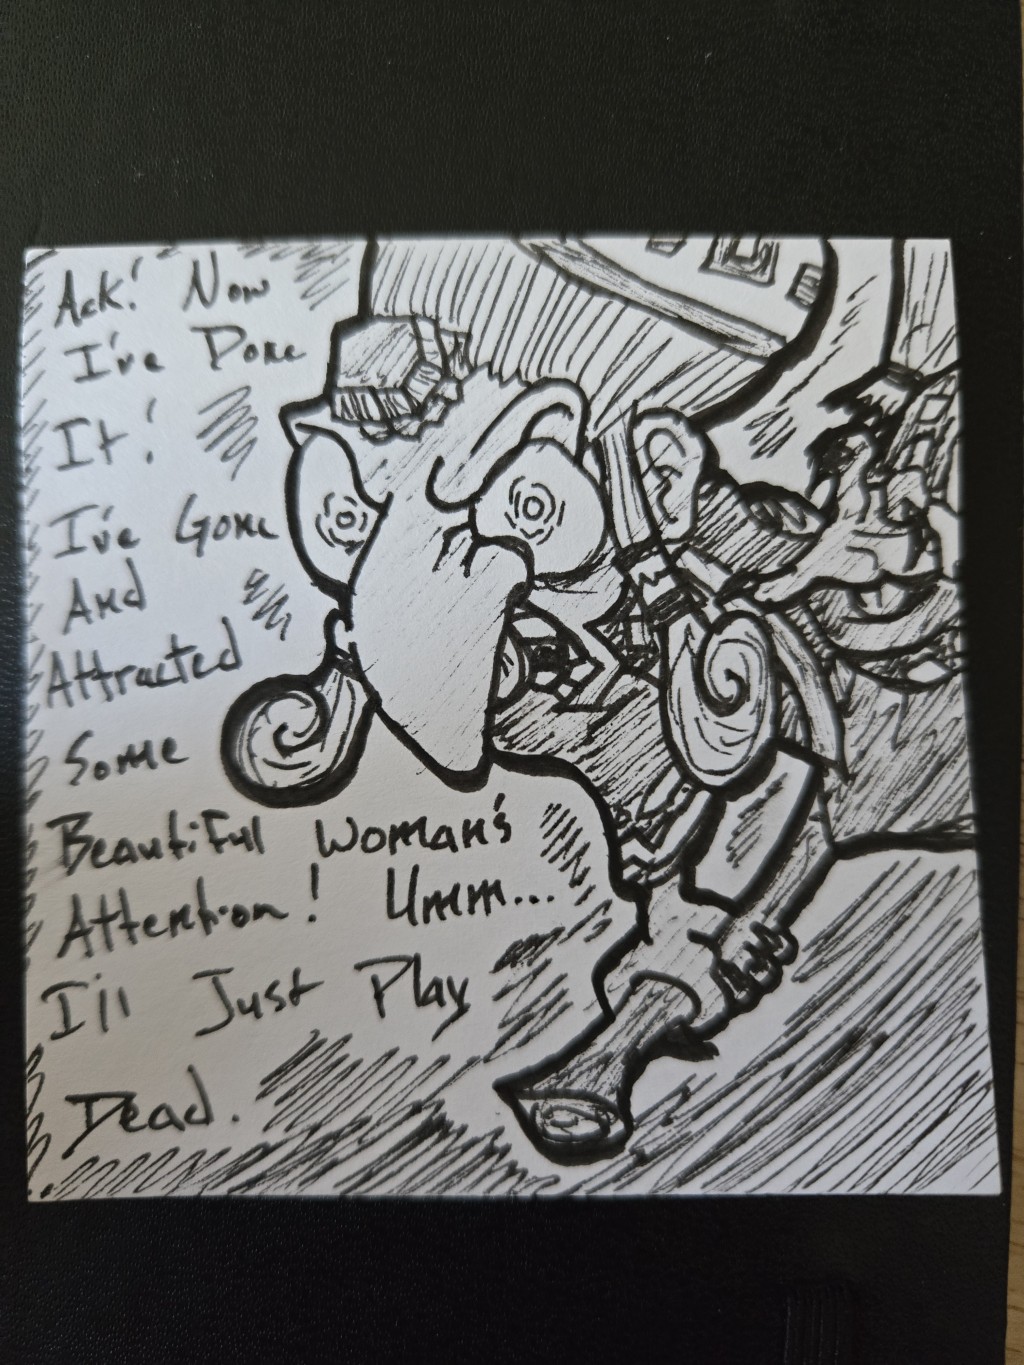 Ack! Now
I've Done
It!
I've Gone
And
Attracted
Some
Beautiful Woman's
Attention! Umm...
I'll Just Play
Dead.